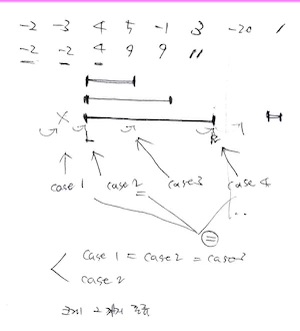 -2 -3 4 5 -1 3 -20 1
-2 -2 4 9 9 11
X
L R
case 1 case 2 case 3 case 4
=
case 1 = case 2 = case 3
case 2
2